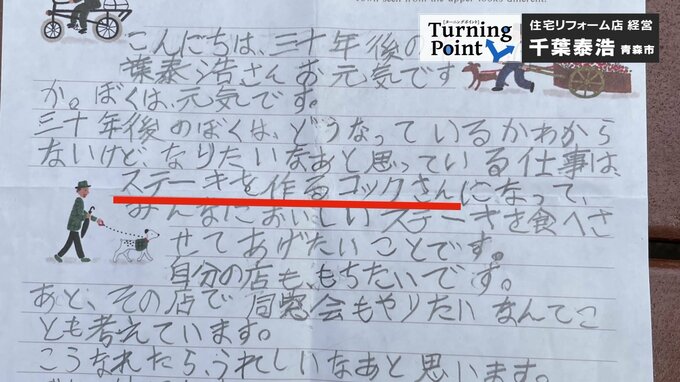 town seen from the upper looks different.
Turning
[ターニングポイント]
Point
住宅リフォーム店 経営
千葉泰浩 青森市
こんにちは、三十年後の
葉泰浩さんお元気です
か。ぼくは、元気です。
三十年後のぼくは、どうなっているかわから
ないけど、なりたいなあと思っている仕事は、
ステーキを作るコックさんになって、
みんなにおいしいステーキを食べさ
せてあげたいことです。
自分の店も、もちたいです。
あと、その店で同窓会もやりたいなんてこ
とも考えています。
こうなれたら、うれしいなあと思います。